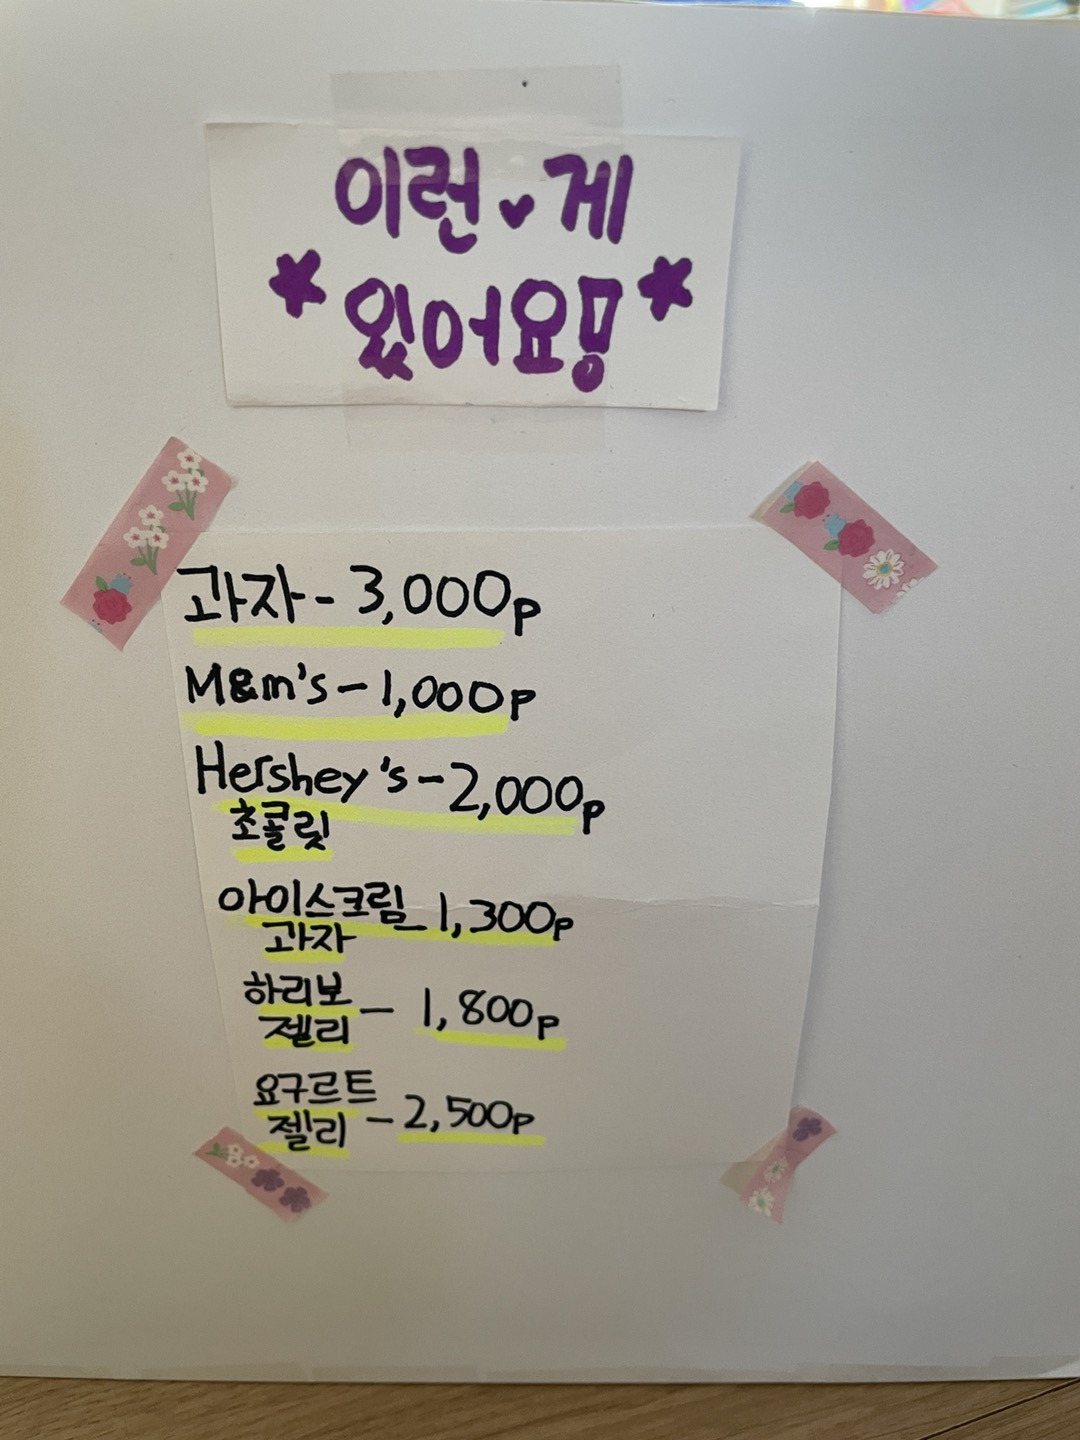 이런♥게
*있어요!*
과자-3,000p
M&m's-1,000p
Hershey's-2,000p
초콜릿
아이스크림-1,300p
과자
하리보
젤리 - 1,800p
요구르트
젤리 - 2,500p